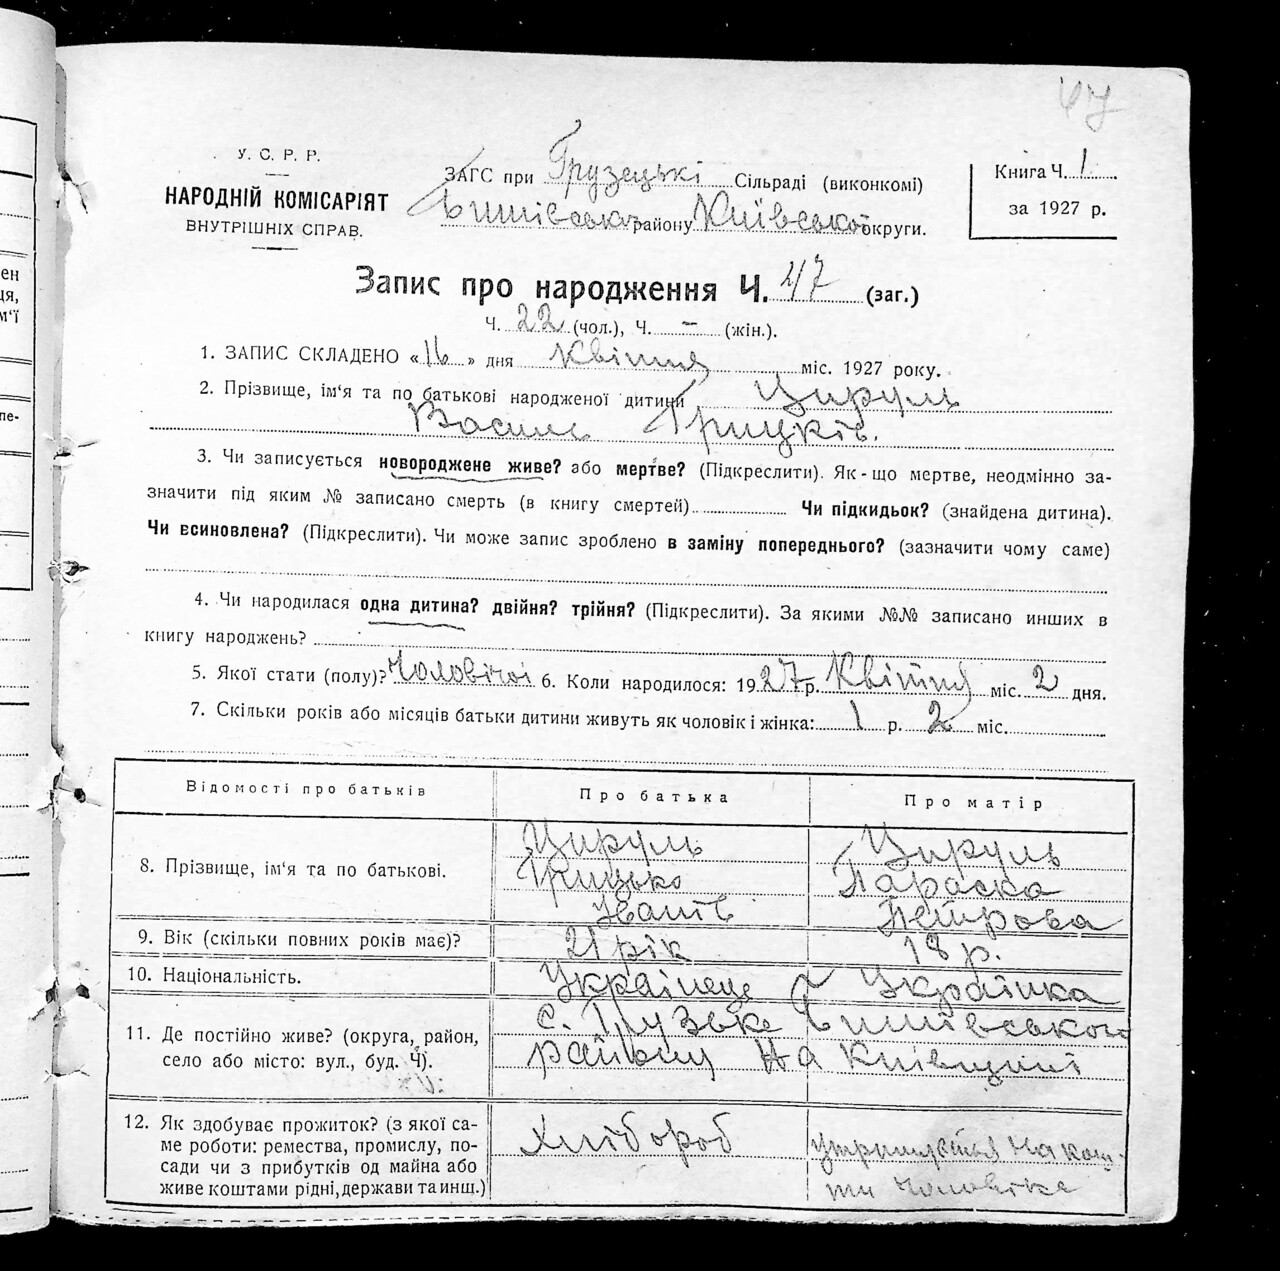 47
У. С. Р. Р.
НАРОДНІЙ КОМІСАРІЯТ
ВНУТРІШНІХ СПРАВ.
ЗАГС при Грузецькі Сільраді (виконкомі)
Бишівсько району Київської округи.
Книга Ч. 1
за 1927 р.
Запис про народження Ч. 47 (заг.)
Ч. 22 (чол.), Ч. – (жін.).
1. ЗАПИС СКЛАДЕНО «16» дня Квітня міс. 1927 року.
2. Прізвище, ім‘я та по батькові народженої дитини Цируль
Василь Грицьків.
3. Чи записується новороджене живе? або мертве? (Підкреслити). Як-що мертве, неодмінно за-
значити під яким № записано смерть (в книгу смертей) Чи підкидьок? (знайдена дитина).
Чи всиновлена? (Підкреслити). Чи може запис зроблено в заміну попереднього? (зазначити чому саме)
4. Чи народилася одна дитина? двійня? трійня? (Підкреслити). За якими №№ записано инших в
книгу народжень?
5. Якої стати (полу)? Чоловічої 6. Коли народилося: 1927 р. Квітня міс. 2 дня.
7. Скільки років або місяців батьки дитини живуть як чоловік і жінка: 1 р. 2 міс.
Відомості про батьків Про батька Про матір
8. Прізвище, ім‘я та по батькові.
Цируль
Грицько
Іванів
Цируль
Параска
Петрова
9. Вік (скільки повних років має)? 21 рік 18 р.
10. Національність. Українець Українка
11. Де постійно живе? (округа, район,
село або місто: вул., буд. Ч).
с. Грузьке Бишівського
району на Київщині
12. Як здобуває прожиток? (з якої са-
ме роботи: ремества, промислу, по-
сади чи з прибутків од майна або
живе коштами рідні, держави та инш.)
Хлібороб
утримується на кош-
ти чоловіка